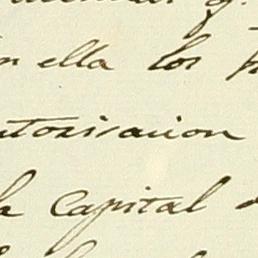 en ella los
utorisacion
la Capital